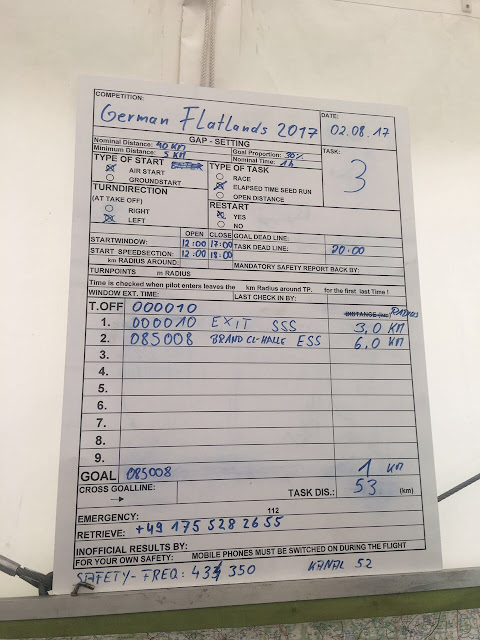 COMPETITION:
German Flatlands 2017
DATE:
02.08.17
GAP - SETTING
Nominal Distance: 40 KM
Goal Proportion: 30%
Minimum Distance: 5 KM
Nominal Time: 1h
TASK:
3
TYPE OF START
AIR START
GROUNDSTART
TYPE OF TASK
RACE
ELAPSED TIME SEED RUN
OPEN DISTANCE
TURNDIRECTION
(AT TAKE OFF)
RIGHT
LEFT
RESTART
YES
NO
OPEN CLOSE
STARTWINDOW: 12:00 17:00
GOAL DEAD LINE:
START SPEEDSECTION: 12:00 18:00
TASK DEAD LINE: 20:00
km RADIUS AROUND:
MANDATORY SAFETY REPORT BACK BY:
TURNPOINTS m RADIUS
Time is checked when pilot enters leaves the km Radius around TP. for the first last Time !
WINDOW EXT. TIME: LAST CHECK IN BY:
T.OFF 000010 DISTANCE (km) RADIUS
1. 000010 EXIT SSS 3,0 KM
2. 085008 BRAND CL-HALLE ESS 6,0 KM
3.
4.
5.
6.
7.
8.
9.
GOAL 085008 1 KM
CROSS GOALLINE: → TASK DIS.: 53 (km)
EMERGENCY: 112
RETRIEVE: +49 175 528 2655
INOFFICIAL RESULTS BY:
FOR YOUR OWN SAFETY: MOBILE PHONES MUST BE SWITCHED ON DURING THE FLIGHT
SAFETY-FREQ: 433 350 KANAL 52